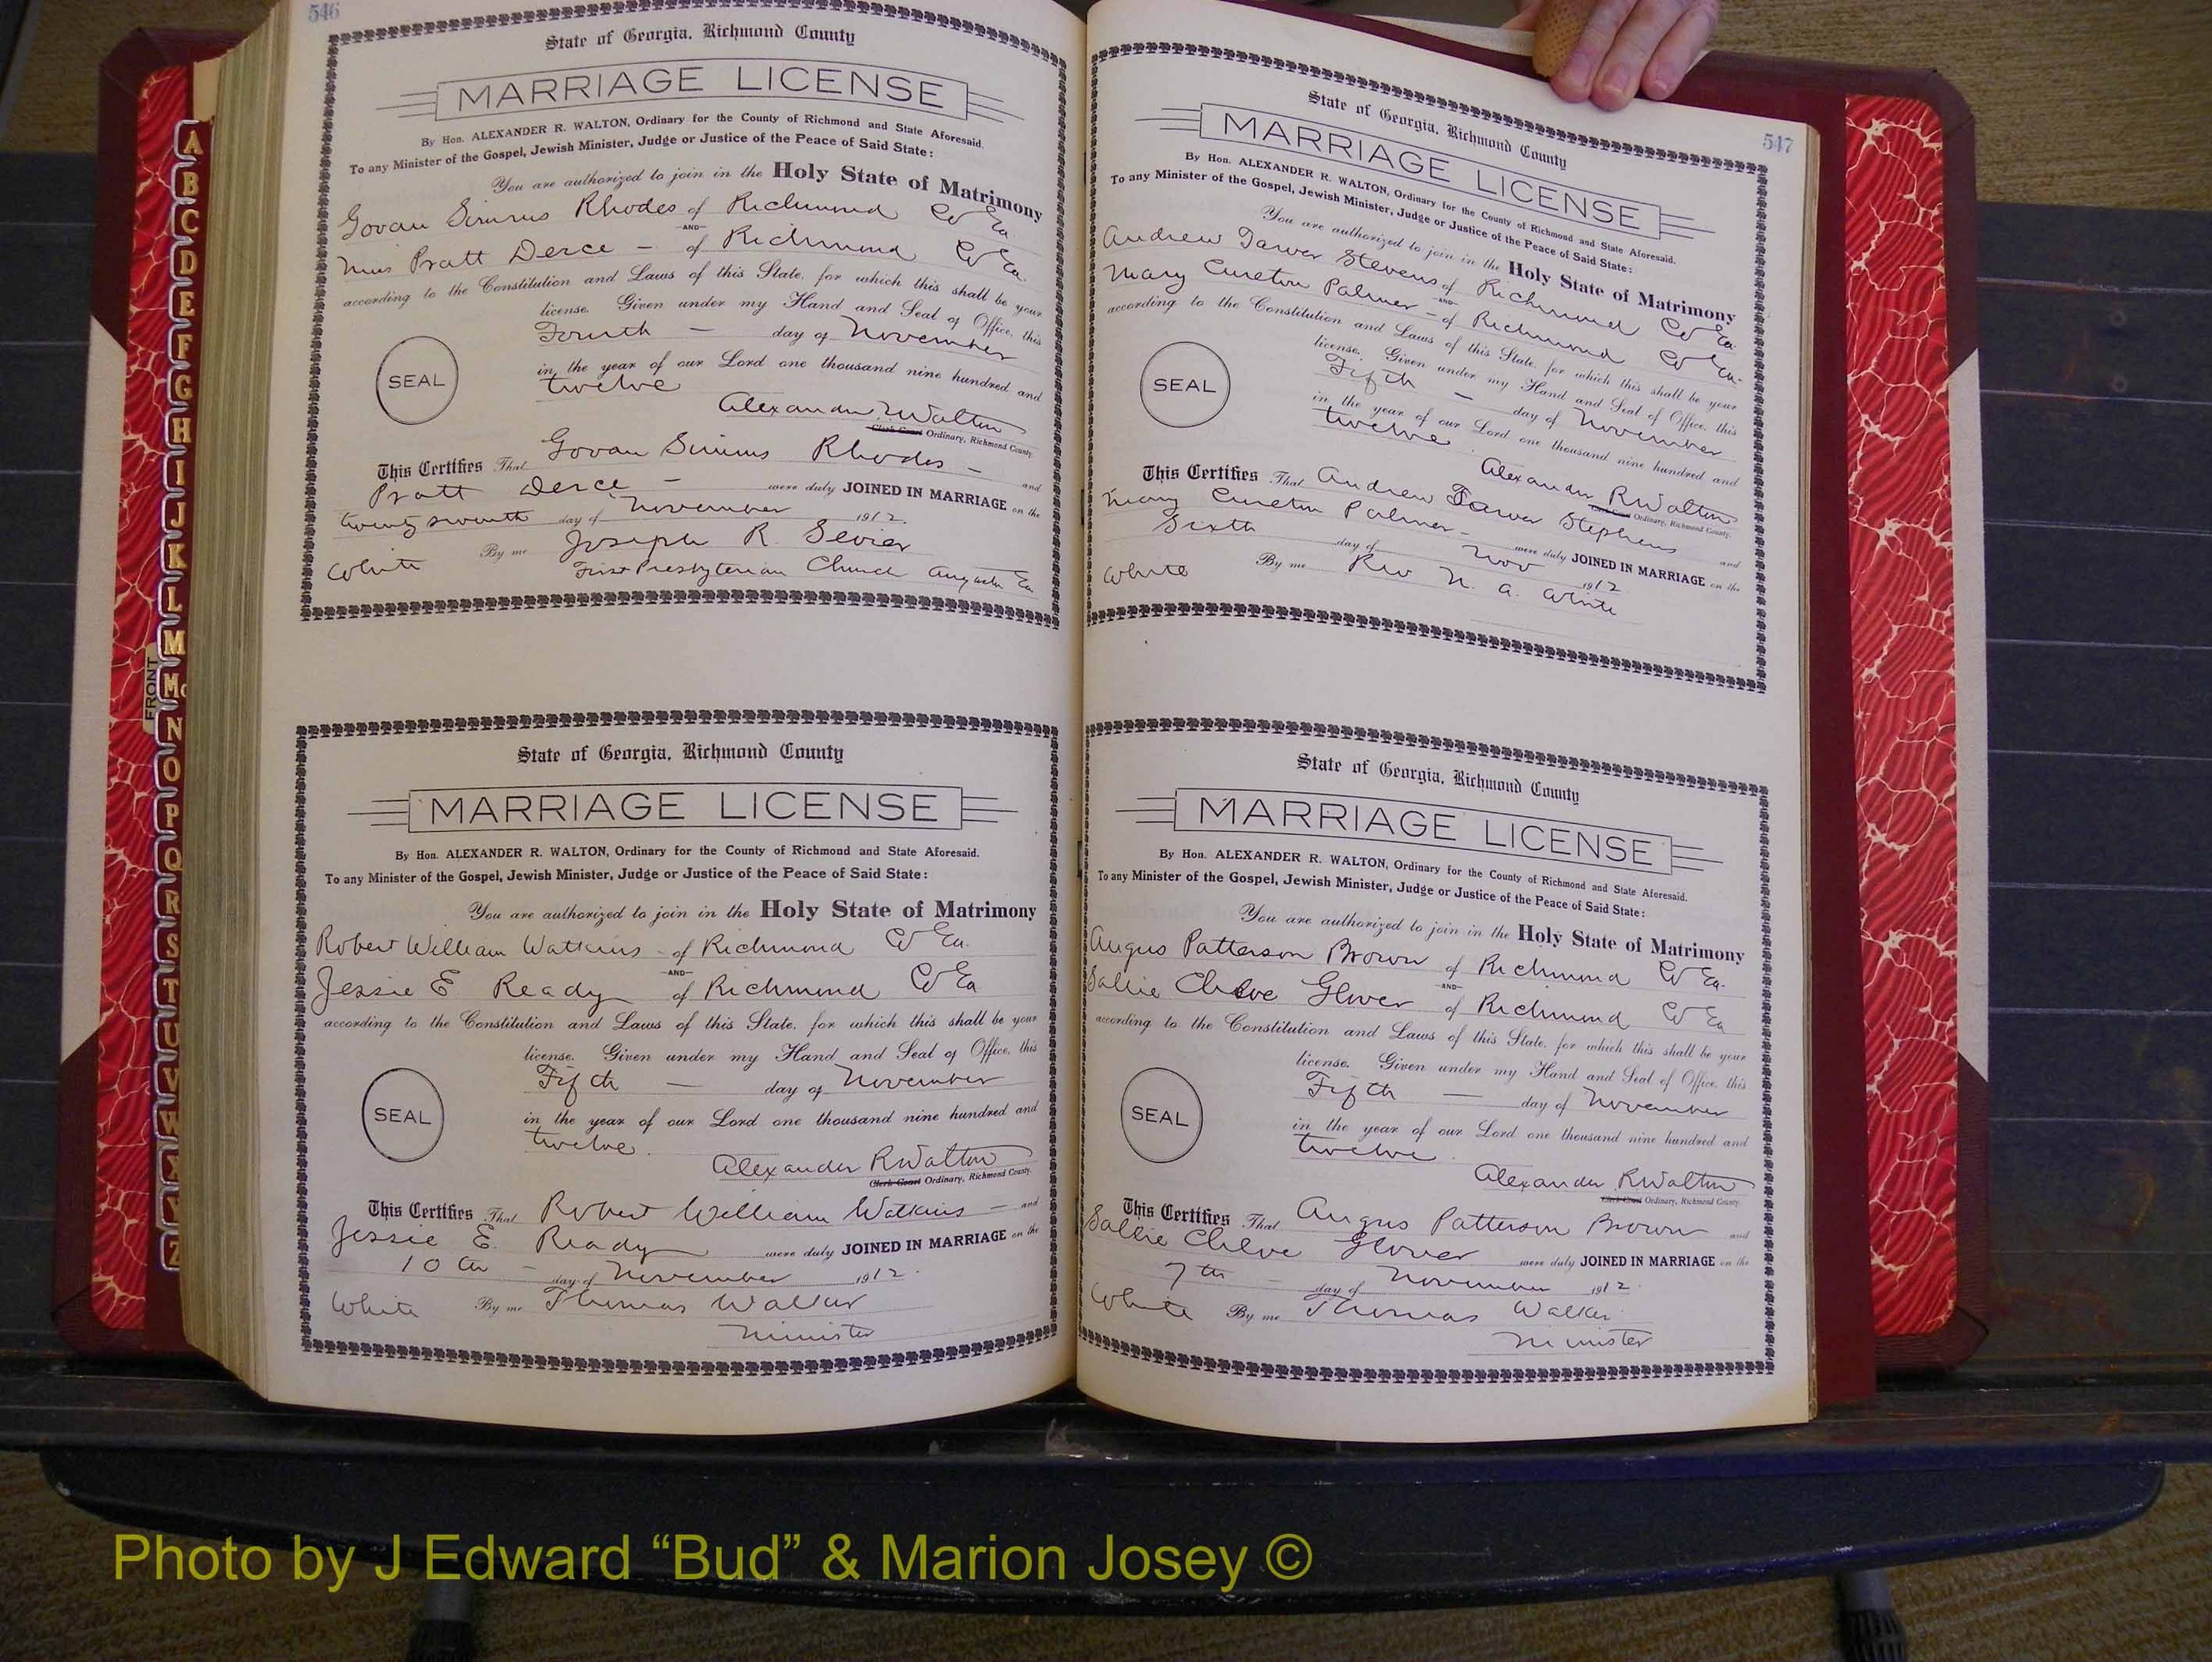 546
State of Georgia, Richmond County
MARRIAGE LICENSE
By Hon. ALEXANDER R. WALTON, Ordinary for the County of Richmond and State Aforesaid.
To any Minister of the Gospel, Jewish Minister, Judge or Justice of the Peace of Said State:
You are authorized to join in the Holy State of Matrimony
Govan Simms Rhodes of Richmond Co Ga
AND
Miss Pratt Derce - of Richmond Co Ga.
according to the Constitution and Laws of this State, for which this shall be your
license. Given under my Hand and Seal of Office, this
Fourth - day of November
in the year of our Lord one thousand nine hundred and
SEAL
twelve
Alexander R Walton
Clerk Court Ordinary, Richmond County.
This Certifies That Govan Simms Rhodes - and
Pratt Derce - were duly JOINED IN MARRIAGE on the
twenty seventh day of November 1912.
White By me Joseph R. Sevier
First Presbyterian Church Augusta Ga
State of Georgia, Richmond County
MARRIAGE LICENSE
By Hon. ALEXANDER R. WALTON, Ordinary for the County of Richmond and State Aforesaid.
To any Minister of the Gospel, Jewish Minister, Judge or Justice of the Peace of Said State:
You are authorized to join in the Holy State of Matrimony
Robert William Watkins - of Richmond Co Ga.
AND
Jessie E Ready of Richmond Co Ga
according to the Constitution and Laws of this State, for which this shall be your
license. Given under my Hand and Seal of Office, this
Fifth - day of November
SEAL
in the year of our Lord one thousand nine hundred and
twelve.
Alexander R Walton
Clerk Court Ordinary, Richmond County.
This Certifies That Robert William Watkins - and
Jessie E. Ready were duly JOINED IN MARRIAGE on the
10th - day of November 1912.
White By me Thomas Walker
Minister
547
State of Georgia, Richmond County
MARRIAGE LICENSE
By Hon. ALEXANDER R. WALTON, Ordinary for the County of Richmond and State Aforesaid.
To any Minister of the Gospel, Jewish Minister, Judge or Justice of the Peace of Said State:
You are authorized to join in the Holy State of Matrimony
Andrew Tarver Stevens of Richmond Co Ga
AND
Mary Cureton Palmer - of Richmond Co Ga.
according to the Constitution and Laws of this State, for which this shall be your
license. Given under my Hand and Seal of Office, this
Fifth - day of November
SEAL
in the year of our Lord one thousand nine hundred and
twelve
Alexander R Walton
Clerk Court Ordinary, Richmond County.
This Certifies That Andrew Tarver Stephens and
Mary Cureton Palmer - were duly JOINED IN MARRIAGE on the
Sixth day of Nov 1912
White By me Rev N. A. White
State of Georgia, Richmond County
MARRIAGE LICENSE
By Hon. ALEXANDER R. WALTON, Ordinary for the County of Richmond and State Aforesaid.
To any Minister of the Gospel, Jewish Minister, Judge or Justice of the Peace of Said State:
You are authorized to join in the Holy State of Matrimony
Angus Patterson Brown of Richmond Co Ga.
AND
Sallie Cleve Glover of Richmond Co Ga
according to the Constitution and Laws of this State, for which this shall be your
license. Given under my Hand and Seal of Office, this
Fifth - day of November
SEAL
in the year of our Lord one thousand nine hundred and
twelve.
Alexander R Walton
Clerk Court Ordinary, Richmond County.
This Certifies That Angus Patterson Brown and
Sallie Cleve Glover were duly JOINED IN MARRIAGE on the
7th - day of November 1912.
White By me Thomas Walker
Minister
A
B
C
D
E
F
G
H
I
J
K
L
M
Mc
N
O
P
Q
R
S
T
U
V
W
X
Y
Z
FRONT
Photo by J Edward “Bud” & Marion Josey ©